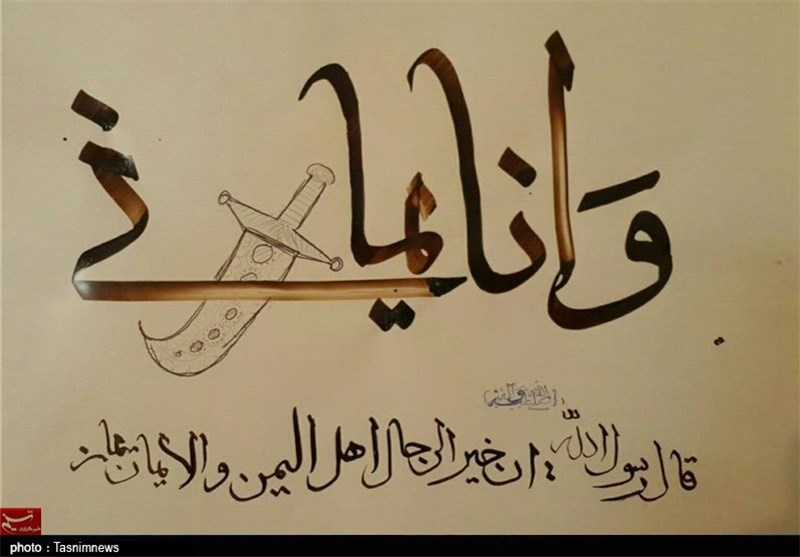 وَانا یمانی
قال رسول الله: ان خیر الرجال اهل الیمن و الایمان یمان
photo : Tasnimnews